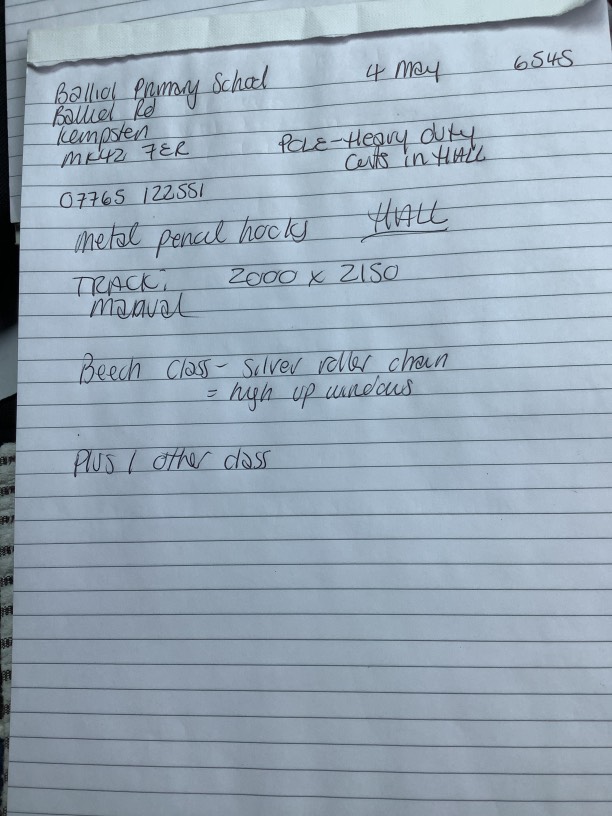 Balliol Primary School 4 May 6545
Balliol Rd
Kempsten
MK42 7ER POLE-Heavy duty
Certs in HALL
07765 122551
Metal pencil hooks HALL
TRACK: 2000 x 2150
Manual
Beech Class - silver roller chain
= high up windows
Plus 1 other class